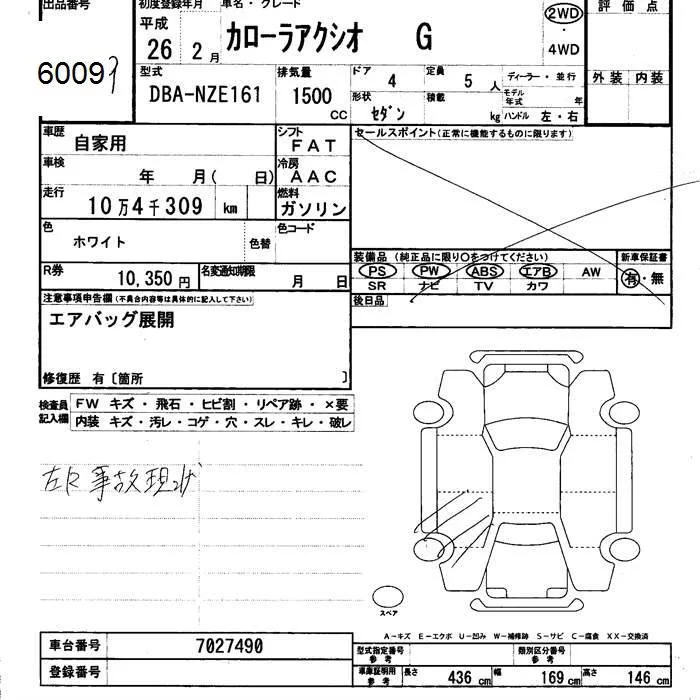 出品番号 初度登録年月 車名・グレード 2WD 評価点
平成
26 2月 カローラアクシオ G
・
4WD
60093
型式 排気量 ドア 4 定員 5 人 ディーラー・並行 外装 内装
DBA-NZE161 1500 CC 形状 セダン 積載 kg モデル年式 年
ハンドル 左・右
車歴 自家用 シフト FAT セールスポイント(正常に機能するものに限ります)
車検 年 月( 日) 冷房 AAC
走行 10万4千309 km 燃料 ガソリン
色 ホワイト 色替 色コード
装備品 (純正品に限り○をつけてください) 新車保証書
PS PW ABS エアB AW 有・無
SR ナビ TV カワ
R券 10,350円 名変通知期限 月 日
後日品
注意事項申告欄(不具合内容等は具体的に記入して下さい)
エアバッグ展開
修復歴 有〔箇所 〕
検査員記入欄 FW キズ・飛石・ヒビ割・リペア跡・×要
内装 キズ・汚レ・コゲ・穴・スレ・キレ・破レ
左R事故現状
スペア
A-キズ E-エクボ U-凹み W-補修跡 S-サビ C-腐食 XX-交換済
車台番号 7027490 型式指定番号 参考 類別区分番号 参考
登録番号 車庫証明用 参考 長さ 436 cm 幅 169 cm 高さ 146 cm